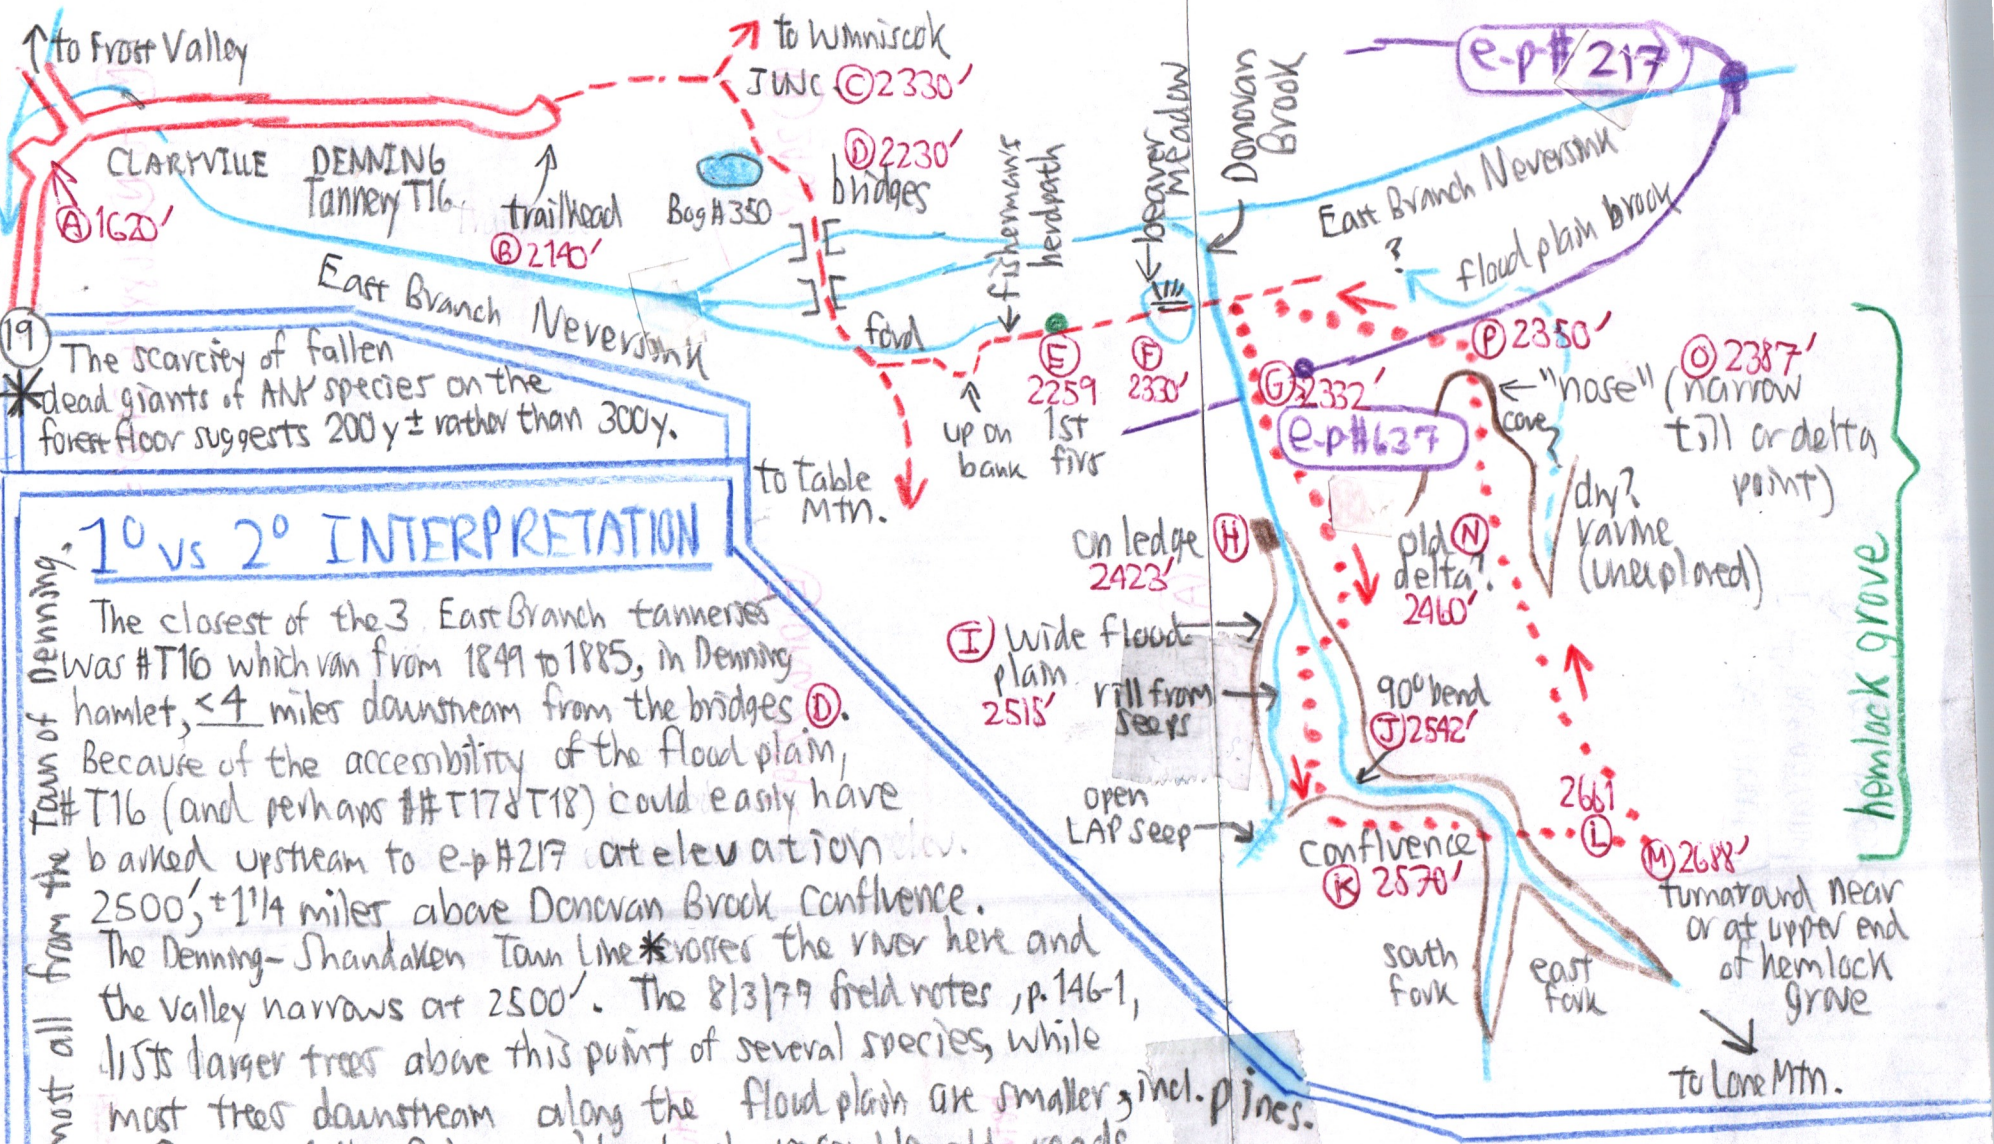 ↑ to Frost Valley
to Winniscok
JUNC Ⓒ 2330'
CLARYVILLE
DENNING
Tannery T16
Ⓐ 1620'
trailhead
Ⓑ 2140'
Bog #350
Ⓓ 2230'
bridges
fisherman's
herdpath
beaver
meadow
Donovan
Brook
e-p# 217
East Branch Neversink
flood plain brook
?
East Branch Neversink
ford
up on
bank
Ⓔ
2259
1st
firs
Ⓕ
2330'
Ⓖ 2332'
e-p#637
Ⓟ 2350'
Ⓞ 2387'
"nose" (narrow
till or delta
point)
cove?
dry?
ravine
(unexplored)
to table
Mtn.
on ledge Ⓗ
2423'
old Ⓝ
delta?
2460'
Ⓘ wide flood
plain
2515'
rill from
seeps
90° bend
Ⓙ 2542'
open
LAP seep
confluence
Ⓚ 2570'
2661
Ⓛ
Ⓜ 2688'
turnaround near
or at upper end
of hemlock
grove
south
fork
east
fork
to Lone Mtn.
hemlock grove
19
The scarcity of fallen
*dead giants of ANY species on the
forest floor suggests 200y ± rather than 300y.
1° vs 2° INTERPRETATION
The closest of the 3 East Branch tanneries
was #T16 which ran from 1849 to 1885, in Denning
hamlet, <4 miles downstream from the bridges Ⓓ.
Because of the accessibility of the flood plain,
#T16 (and perhaps ##T17&T18) could easily have
barked upstream to e-p#217 at elevation
2500', ±1 1/4 miles above Donovan Brook confluence.
The Denning-Shandaken Town Line *crosses the river here and
the valley narrows at 2500'. The 8/3/79 field notes, p.146-1,
lists larger trees above this point of several species, while
most trees downstream along the flood plain are smaller, incl. pines.
most all from the Town of Denning.